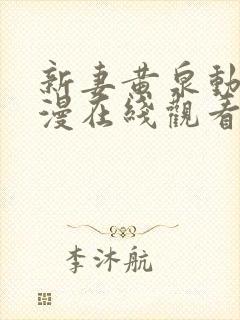 新妻黄泉動
漫在綫觀看
李沐航